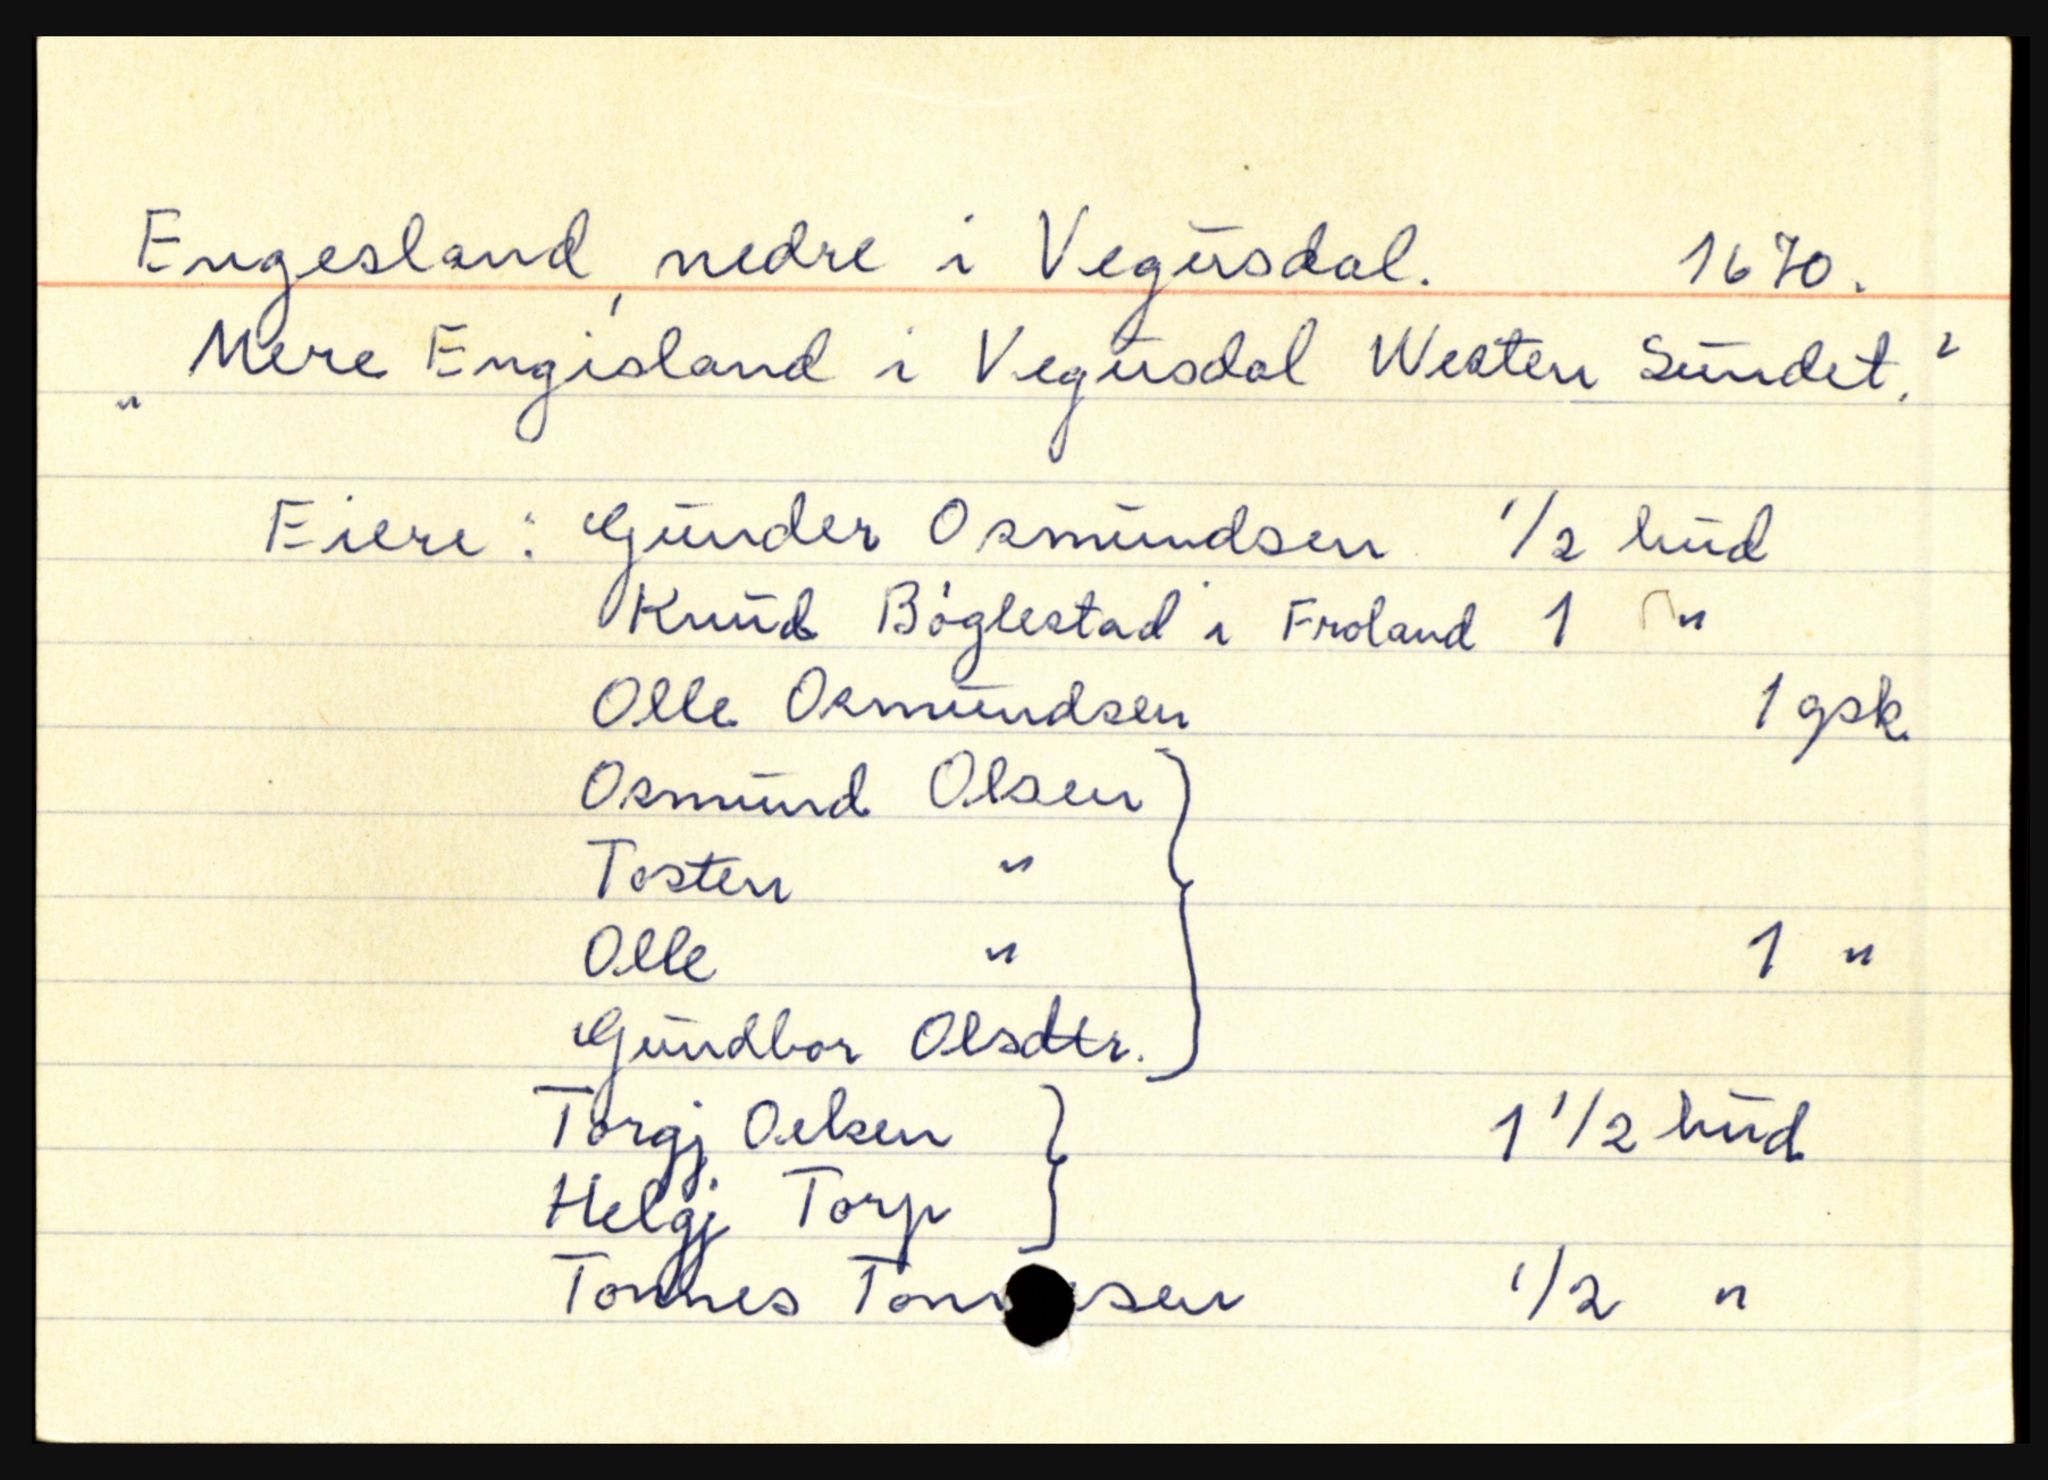 Engesland, nedre i Vegusdal. 1670.
„Mere Engisland i Vegusdal Westen Sundet."
Eiere: Gunder Osmundsen 1/2 hud
Knud Bøglestad i Froland 1 "
Olle Osmundsen 1 gsk.
Osmund Olsen
Tosten "
Olle " 1 "
Gundbor Olsdtr.
Torgj Oelsen 1 1/2 hud
Helgj Torp
Tonnes 1/2 "